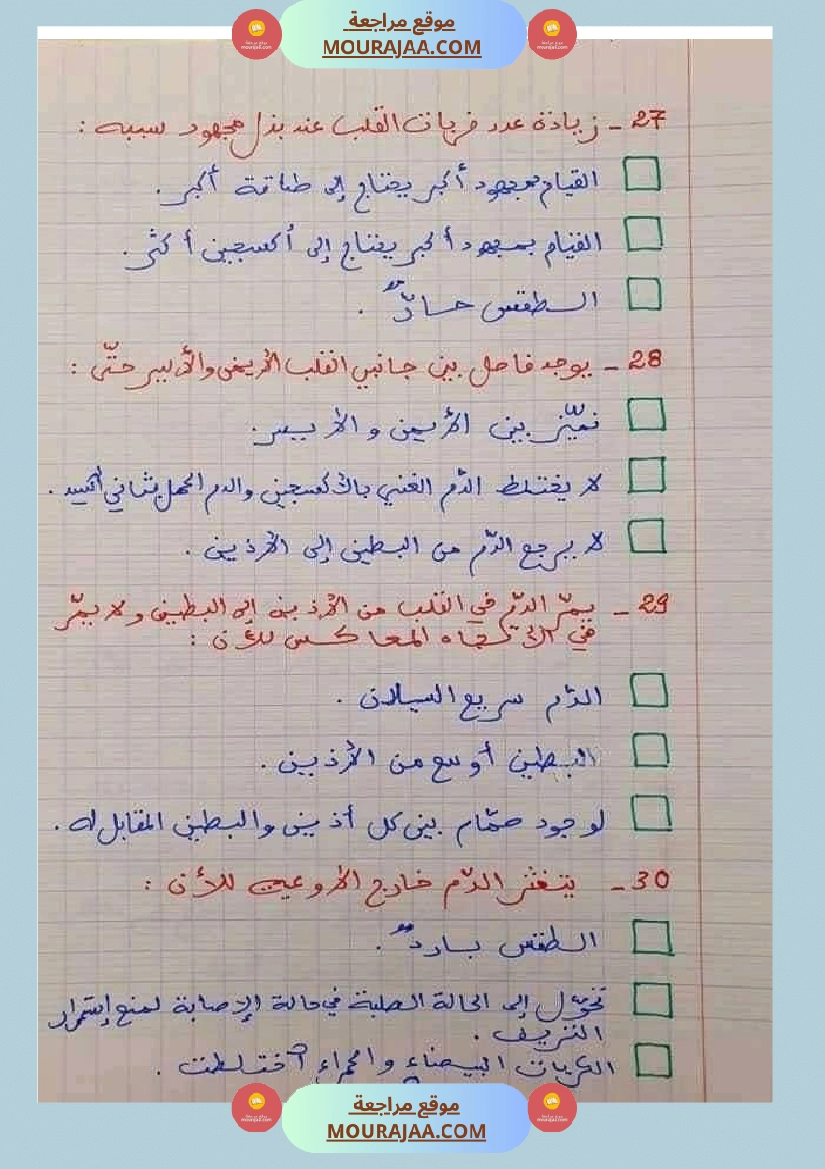 موقع مراجعة
MOURAJAA.COM
27 - زيادة عدد ضربات القلب عند بذل مجهود سببه :
القيام بمجهود أكبر يحتاج إلى طاقة أكبر.
القيام بمجهود أكبر يحتاج إلى أكسجين أكثر.
الطقس حارّ .
28 - يوجد فاصل بين جانبي القلب الأيمن والأيسر حتّى :
نميّز بين الأيمن و الأيسر.
لا يختلط الدّم الغني بالأكسجين والدم المحمل بثاني أكسيد .
لا يرجع الدّم من البطين إلى الأذين .
29 - يمرّ الدّم في القلب من الأذين إلى البطين ولا يمرّ
في الاتجاه المعاكس لأن :
الدّم سريع السيلان .
البطين أوسع من الأذين .
لوجود صمّام بين كل أذين والبطين المقابل له .
30 - يتخثّر الدّم خارج الأوعية لأن :
الطقس بارد .
تحوّل إلى الحالة الصلبة في حالة الإصابة لمنع إستمرار
النزيف .
الكريات البيضاء والحمراء اختلطت .
موقع مراجعة
MOURAJAA.COM